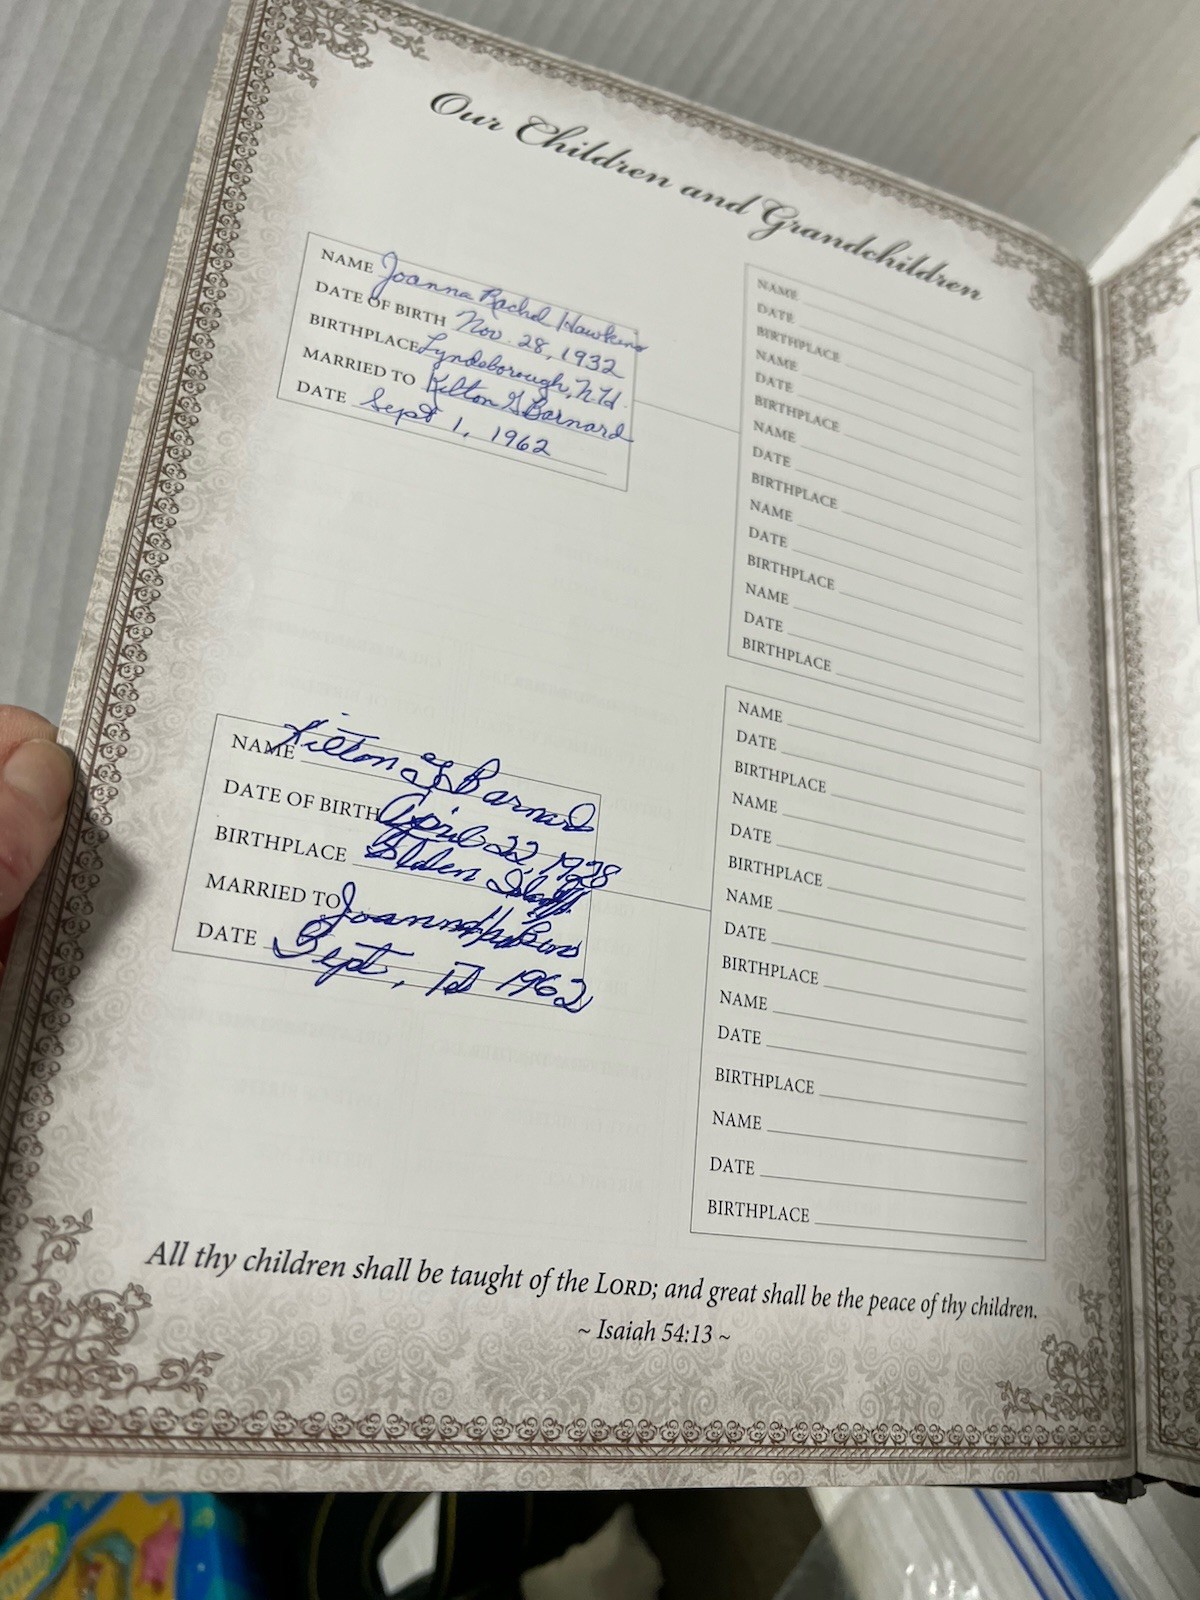 Our Children and Grandchildren
NAME Joanna Rachel Hawkins
DATE OF BIRTH Nov. 28, 1932
BIRTHPLACE Lyndeborough, N.H.
MARRIED TO Kilton G Barnard
DATE Sept 1, 1962
NAME
DATE
BIRTHPLACE
NAME
DATE
BIRTHPLACE
NAME
DATE
BIRTHPLACE
NAME
DATE
BIRTHPLACE
NAME
DATE
BIRTHPLACE
NAME Kilton G Barnard
DATE OF BIRTH April 22, 1928
BIRTHPLACE
MARRIED TO Joanna
DATE Sept, 1962
NAME
DATE
BIRTHPLACE
NAME
DATE
BIRTHPLACE
NAME
DATE
BIRTHPLACE
NAME
DATE
BIRTHPLACE
NAME
DATE
BIRTHPLACE
All thy children shall be taught of the LORD; and great shall be the peace of thy children.
~ Isaiah 54:13 ~